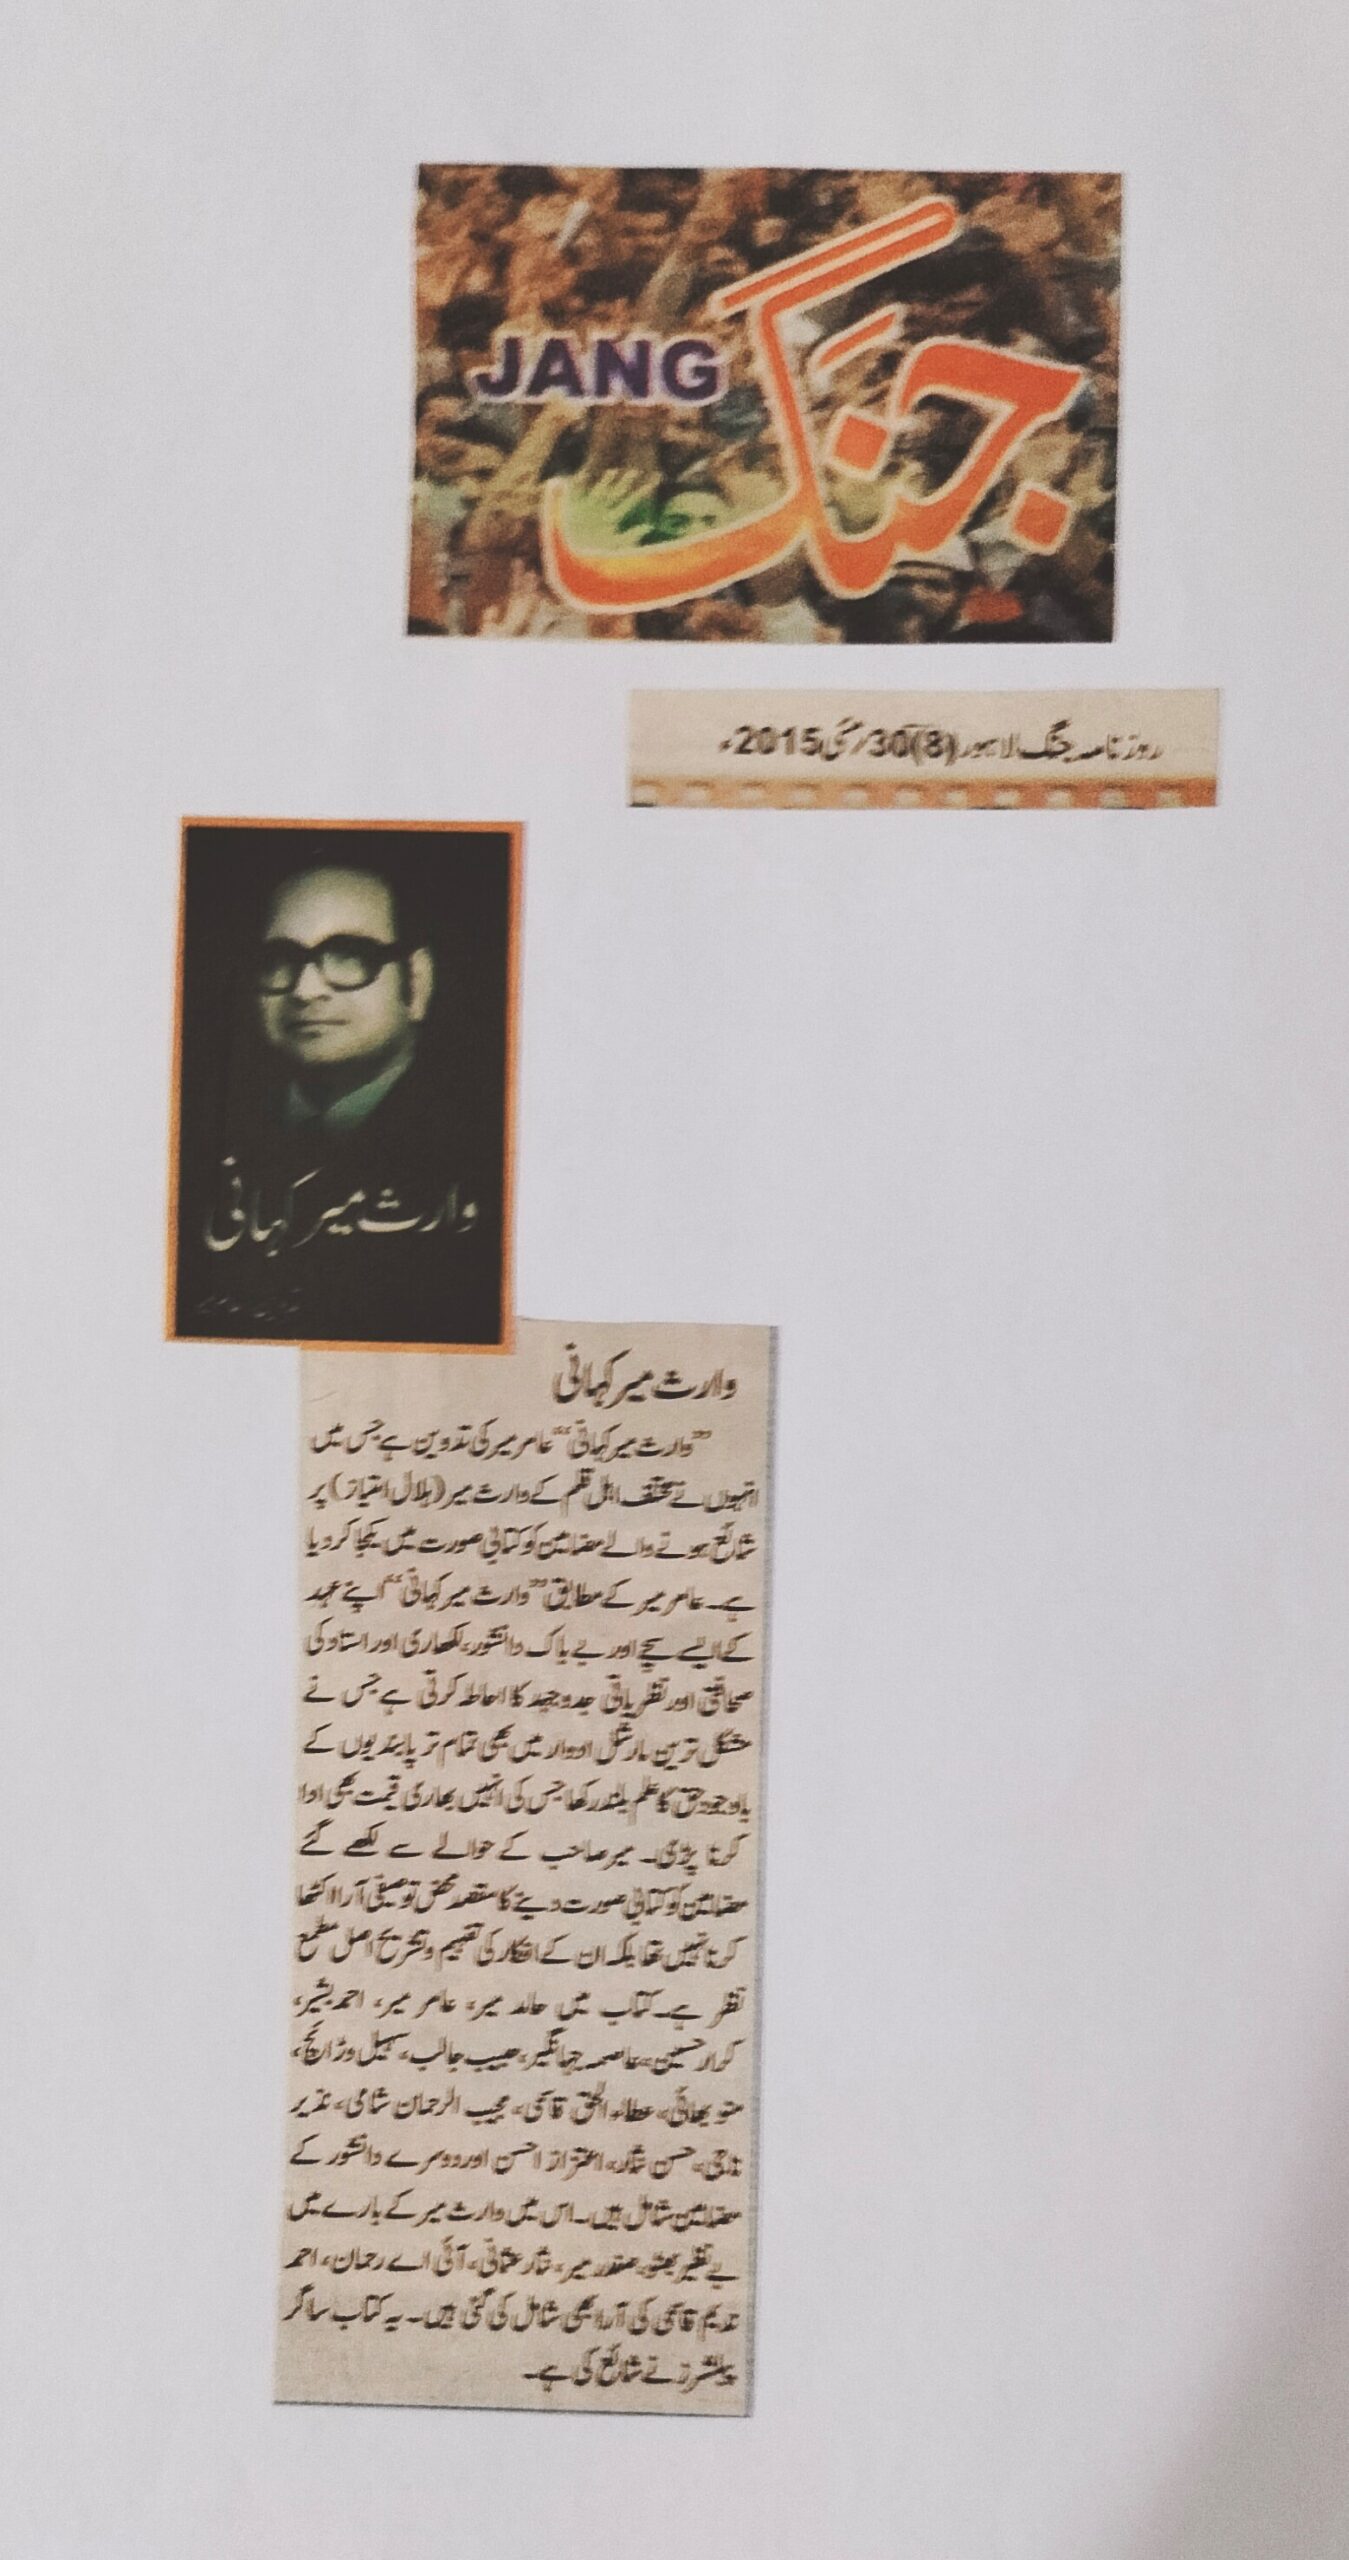 جنگ
JANG
روزنامہ جنگ لاہور (8) 30/مئی 2015ء
وارث میر کہانی
وارث میر کہانی
”وارث میر کہانی“ عامر میر کی تدوین ہے جس میں
انہوں نے مختلف اہل قلم کے وارث میر (ہلال امتیاز) پر
شائع ہونے والے مضامین کو کتابی صورت میں یکجا کر دیا
ہے۔ عامر میر کے مطابق ”وارث میر کہانی“ اپنے عہد
کے ایسے سچے اور بے باک دانشور، لکھاری اور استاد کی
صحافتی اور نظریاتی جدوجہد کا احاطہ کرتی ہے جس نے
مشکل ترین مارشل ادوار میں بھی تمام تر پابندیوں کے
باوجود حق کا علم بلند رکھا جس کی انہیں بھاری قیمت بھی ادا
کرنا پڑی۔ میر صاحب کے حوالے سے لکھے گئے
مضامین کو کتابی صورت دینے کا مقصد محض توصیفی آرا اکٹھا
کرنا نہیں تھا بلکہ ان کے افکار کی تفہیم و تشریح اصل مطمع
نظر ہے۔ کتاب میں حامد میر، عامر میر، احمد بشیر،
کرار حسین، عاصمہ جہانگیر، حبیب جالب، سہیل وڑائچ،
منو بھائی، عطاء الحق قاسمی، مجیب الرحمان شامی، نذیر
ناجی، حسن نثار، اعتزاز احسن اور دوسرے دانشور کے
مضامین شامل ہیں۔ اس میں وارث میر کے بارے میں
بے نظیر بھٹو، صفدر میر، نثار عثمانی، آئی اے رحمان، احمد
ندیم قاسمی کی آرا بھی شامل کی گئی ہیں۔ یہ کتاب ساگر
پبلشرز نے شائع کی ہے۔